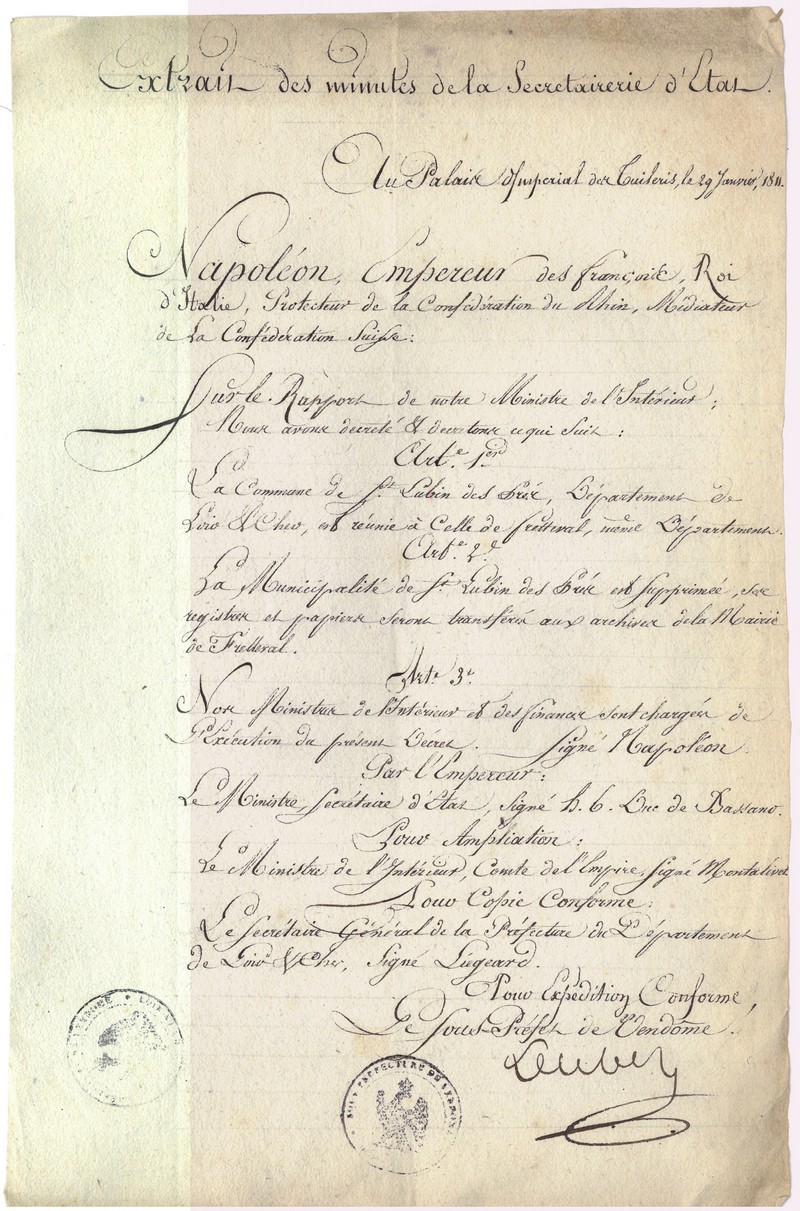 Extrait des minutes de la Secretairerie d'Etat.
Au Palais Impérial des Tuileris, le 29 Janvier, 1811.
Napoléon, Empereur des françois, Roi
d'Italie, Protecteur de la Confédération du Rhin, Médiateur
de La Confédération Suisse:
Sur le Rapport de notre Ministre de l'Intérieur;
Nous avons decreté & decretons ce qui Suit:
Art.e 1.er
La Commune de St. Lubin des Prés, Département de
Loir & Cher, est réunie à Celle de fretteval, même Département.
Art.e 2.e
La Municipalité de St. Lubin des Prés est Supprimée, ses
registres et papiers seront transférés aux archives de la Mairie
de Fretteval.
Art.e 3.e
Nos Ministres de l'Intérieur et des finances sont chargés de
L'Exécution du présent Décret. Signé Napoléon.
Par l'Empereur:
Le Ministre, Secrétaire d'Etat, Signé h. b. Duc de Bassano.
Pour Ampliation:
Le Ministre de l'Intérieur, Comte de l'Empire, Signé Montalivet
Pour Copie Conforme:
Le Secrétaire Général de la Préfecture du Département
de Loir & Cher, Signé Liégeard.
Pour Expédition Conforme,
Le Sous-Préfet de Vendôme.
SOUS PREFECTURE DE VENDOME